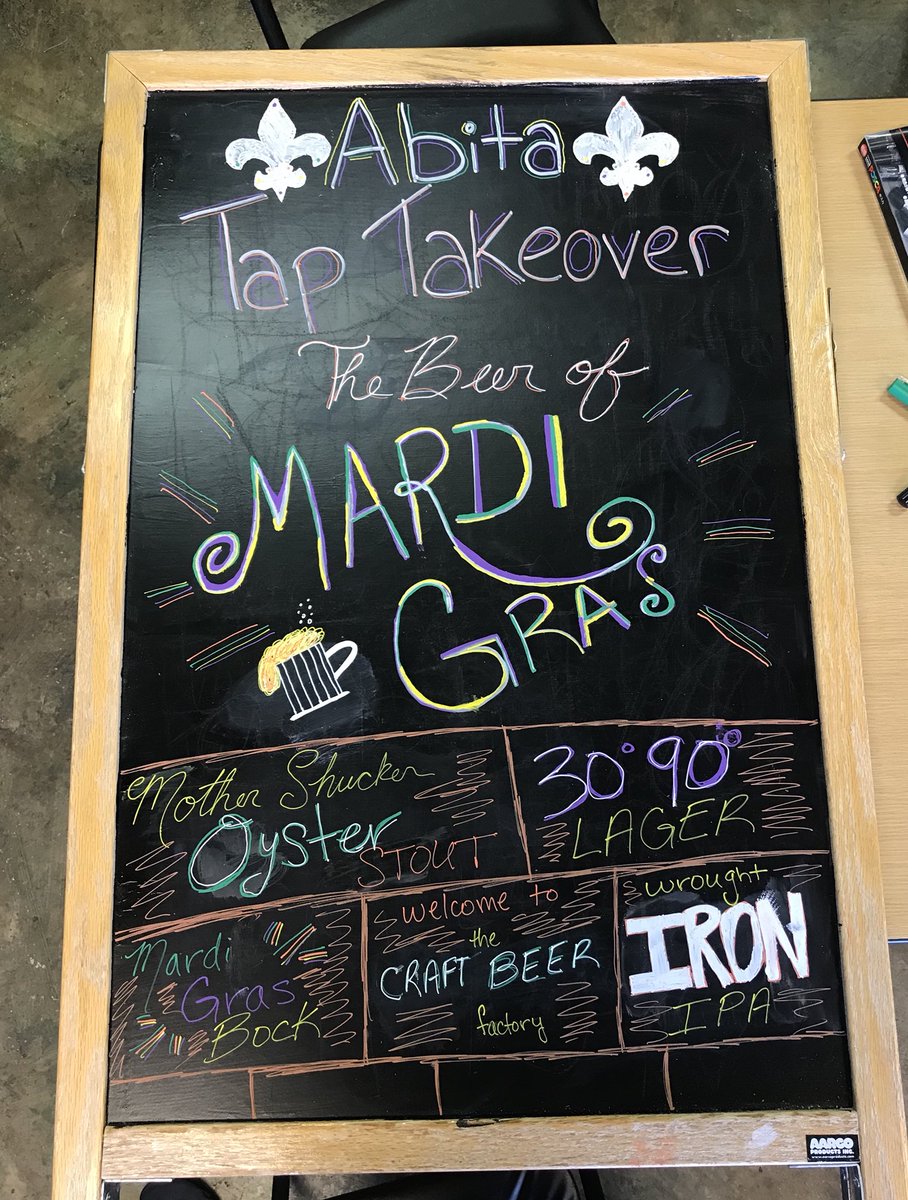 Abita
Tap Takeover
The Beer of
MARDI
GRAS
Mother Shucker
Oyster
STOUT
30° 90°
LAGER
Mardi
Gras
Bock
welcome to
the
CRAFT BEER
factory
wrought
IRON
IPA
AARCO
PRODUCTS INC.